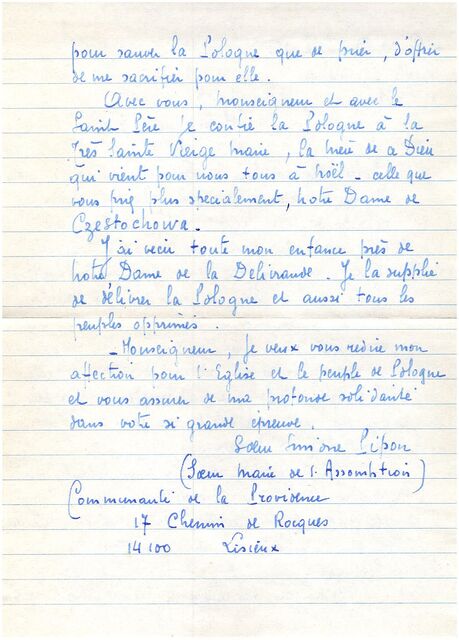 pour sauver la Pologne que de prier, d'offrir
de me sacrifier pour elle.
Avec vous, Monseigneur et avec le
Saint Père je confie la Pologne à la
Très Sainte Vierge Marie, la mère de ce Dieu
qui vient pour nous tous à Noël - celle que
vous priez plus specialement, Notre Dame de
Częstochowa.
J'ai vécu toute mon enfance près de
Notre Dame de la Délivrande. Je la supplie
de délivrer la Pologne et aussi tous les
peuples opprimés.
- Monseigneur, je veux vous redire mon
affection pour l'Eglise et le peuple de Pologne
et vous assurer de ma profonde solidarité
dans votre si grande épreuve.
Soeur Simone Pipon
(Soeur Marie de l'Assomption)
Communauté de la Providence
17 Chemin de Rocques
14100 Lisieux